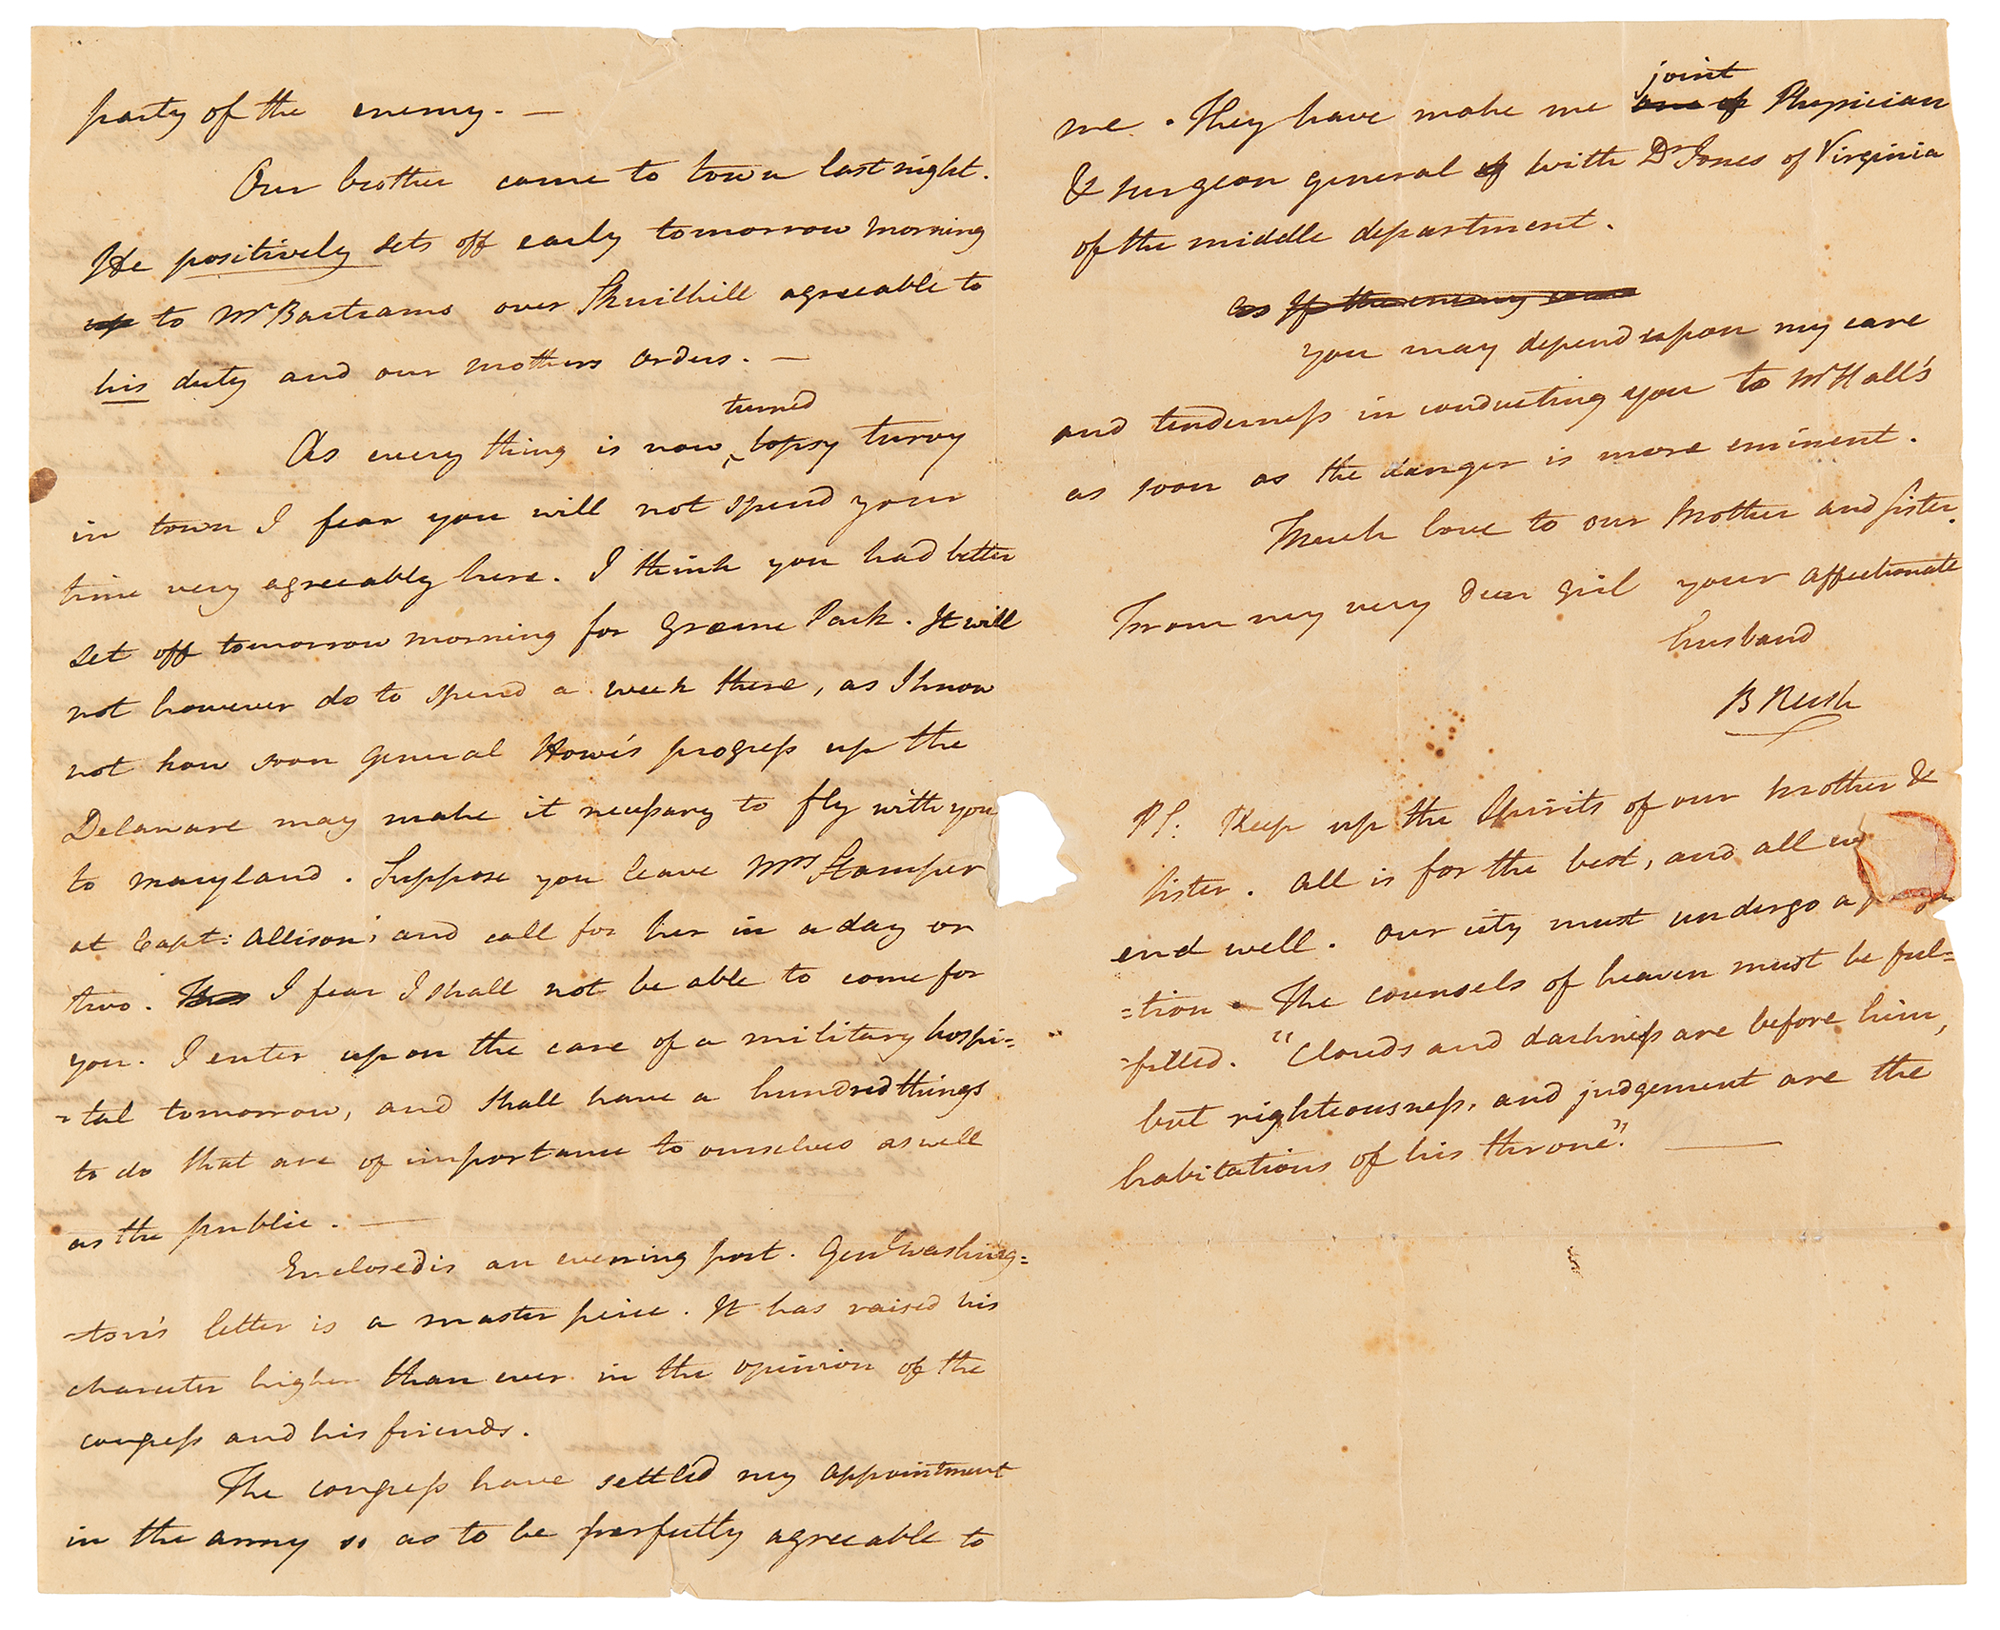 party of the enemy. —
Our brother came to town last night.
He positively sets off early tomorrow morning
up to Mr Bartrams over Skuilkill agreeable to
his duty and our mothers orders. —
turned
As every thing is now ‸ topsy turvy
in town I fear you will not spend your
time very agreeably here. I think you had better
set off tomorrow morning for Græme Park. It will
not however do to spend a week there, as I know
not how soon General Howe's progress up the
Delaware may make it necessary to fly with you
to maryland. Suppose you leave Mrs Stamper
at Capt: Allison's and call for her in a day or
two. I fear I shall not be able to come for
you. I enter upon the care of a military hospi=
=tal tomorrow, and shall have a hundred things
to do that are of importance to ourselves as well
as the public. —
Enclosed is an evening post. Genl Washing=
=ton's letter is a master peice. It has raised his
character higher than ever in the opinion of the
congress and his friends.
The congress have settled my appointment
in the army so as to be perfectly agreeable to
me. They have make me
joint
one of Physician
& surgeon general of with Dr Jones of Virginia
of the middle department.
as If the enemy
you may depend upon my care
and tenderness in conducting you to Mr Hall's
as soon as the danger is more eminent.
Much love to our Mother and sister.
From my very dear girl your affectionate
husband
B Rush
PS: Keep up the Spirits of our mother &
sister. All is for the best, and all
end well. Our city must undergo a
=tion. The counsels of heaven must be ful=
=filled. "Clouds and darkness are before him,
but righteousness, and judgement are the
habitations of his throne". —